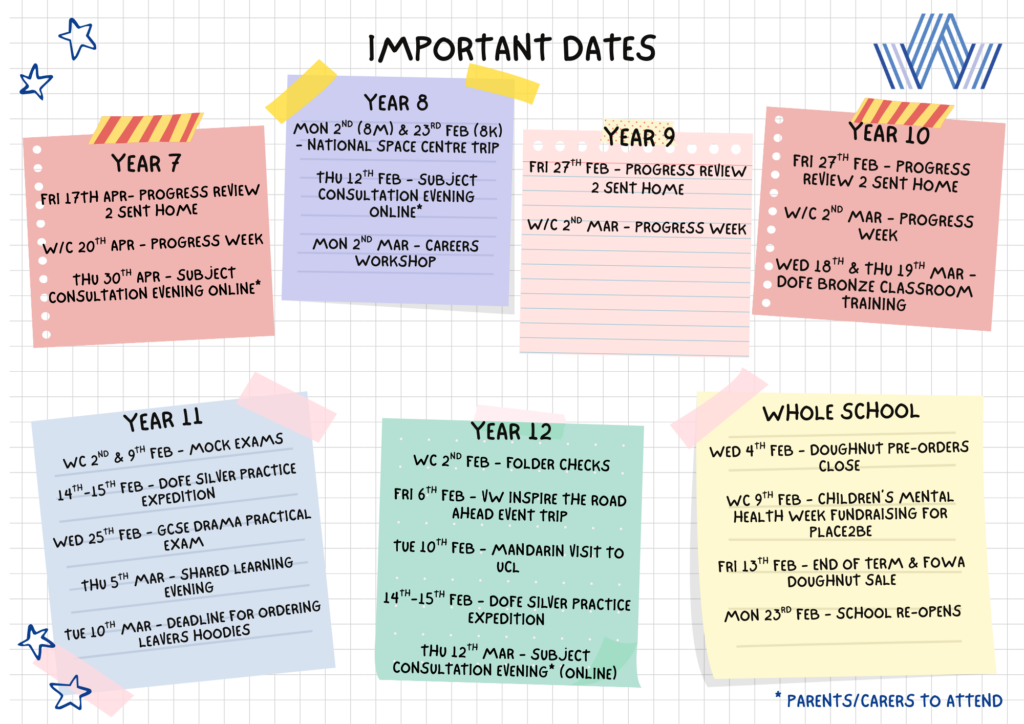 IMPORTANT DATES
YEAR 7
FRI 17TH APR- PROGRESS REVIEW
2 SENT HOME
W/C 20TH APR - PROGRESS WEEK
THU 30TH APR - SUBJECT
CONSULTATION EVENING ONLINE*
YEAR 8
MON 2ND (8M) & 23RD FEB (8K)
- NATIONAL SPACE CENTRE TRIP
THU 12TH FEB - SUBJECT
CONSULTATION EVENING
ONLINE*
MON 2ND MAR - CAREERS
WORKSHOP
YEAR 9
FRI 27TH FEB - PROGRESS REVIEW
2 SENT HOME
W/C 2ND MAR - PROGRESS WEEK
YEAR 10
FRI 27TH FEB - PROGRESS
REVIEW 2 SENT HOME
W/C 2ND MAR - PROGRESS
WEEK
WED 18TH & THU 19TH MAR -
DOFE BRONZE CLASSROOM
TRAINING
YEAR 11
WC 2ND & 9TH FEB - MOCK EXAMS
14TH-15TH FEB - DOFE SILVER PRACTICE
EXPEDITION
WED 25TH FEB - GCSE DRAMA PRACTICAL
EXAM
THU 5TH MAR - SHARED LEARNING
EVENING
TUE 10TH MAR - DEADLINE FOR ORDERING
LEAVERS HOODIES
YEAR 12
WC 2ND FEB - FOLDER CHECKS
FRI 6TH FEB - VW INSPIRE THE ROAD
AHEAD EVENT TRIP
TUE 10TH FEB - MANDARIN VISIT TO
UCL
14TH-15TH FEB - DOFE SILVER PRACTICE
EXPEDITION
THU 12TH MAR - SUBJECT
CONSULTATION EVENING* (ONLINE)
WHOLE SCHOOL
WED 4TH FEB - DOUGHNUT PRE-ORDERS
CLOSE
WC 9TH FEB - CHILDREN'S MENTAL
HEALTH WEEK FUNDRAISING FOR
PLACE2BE
FRI 13TH FEB - END OF TERM & FOWA
DOUGHNUT SALE
MON 23RD FEB - SCHOOL RE-OPENS
* PARENTS/CARERS TO ATTEND